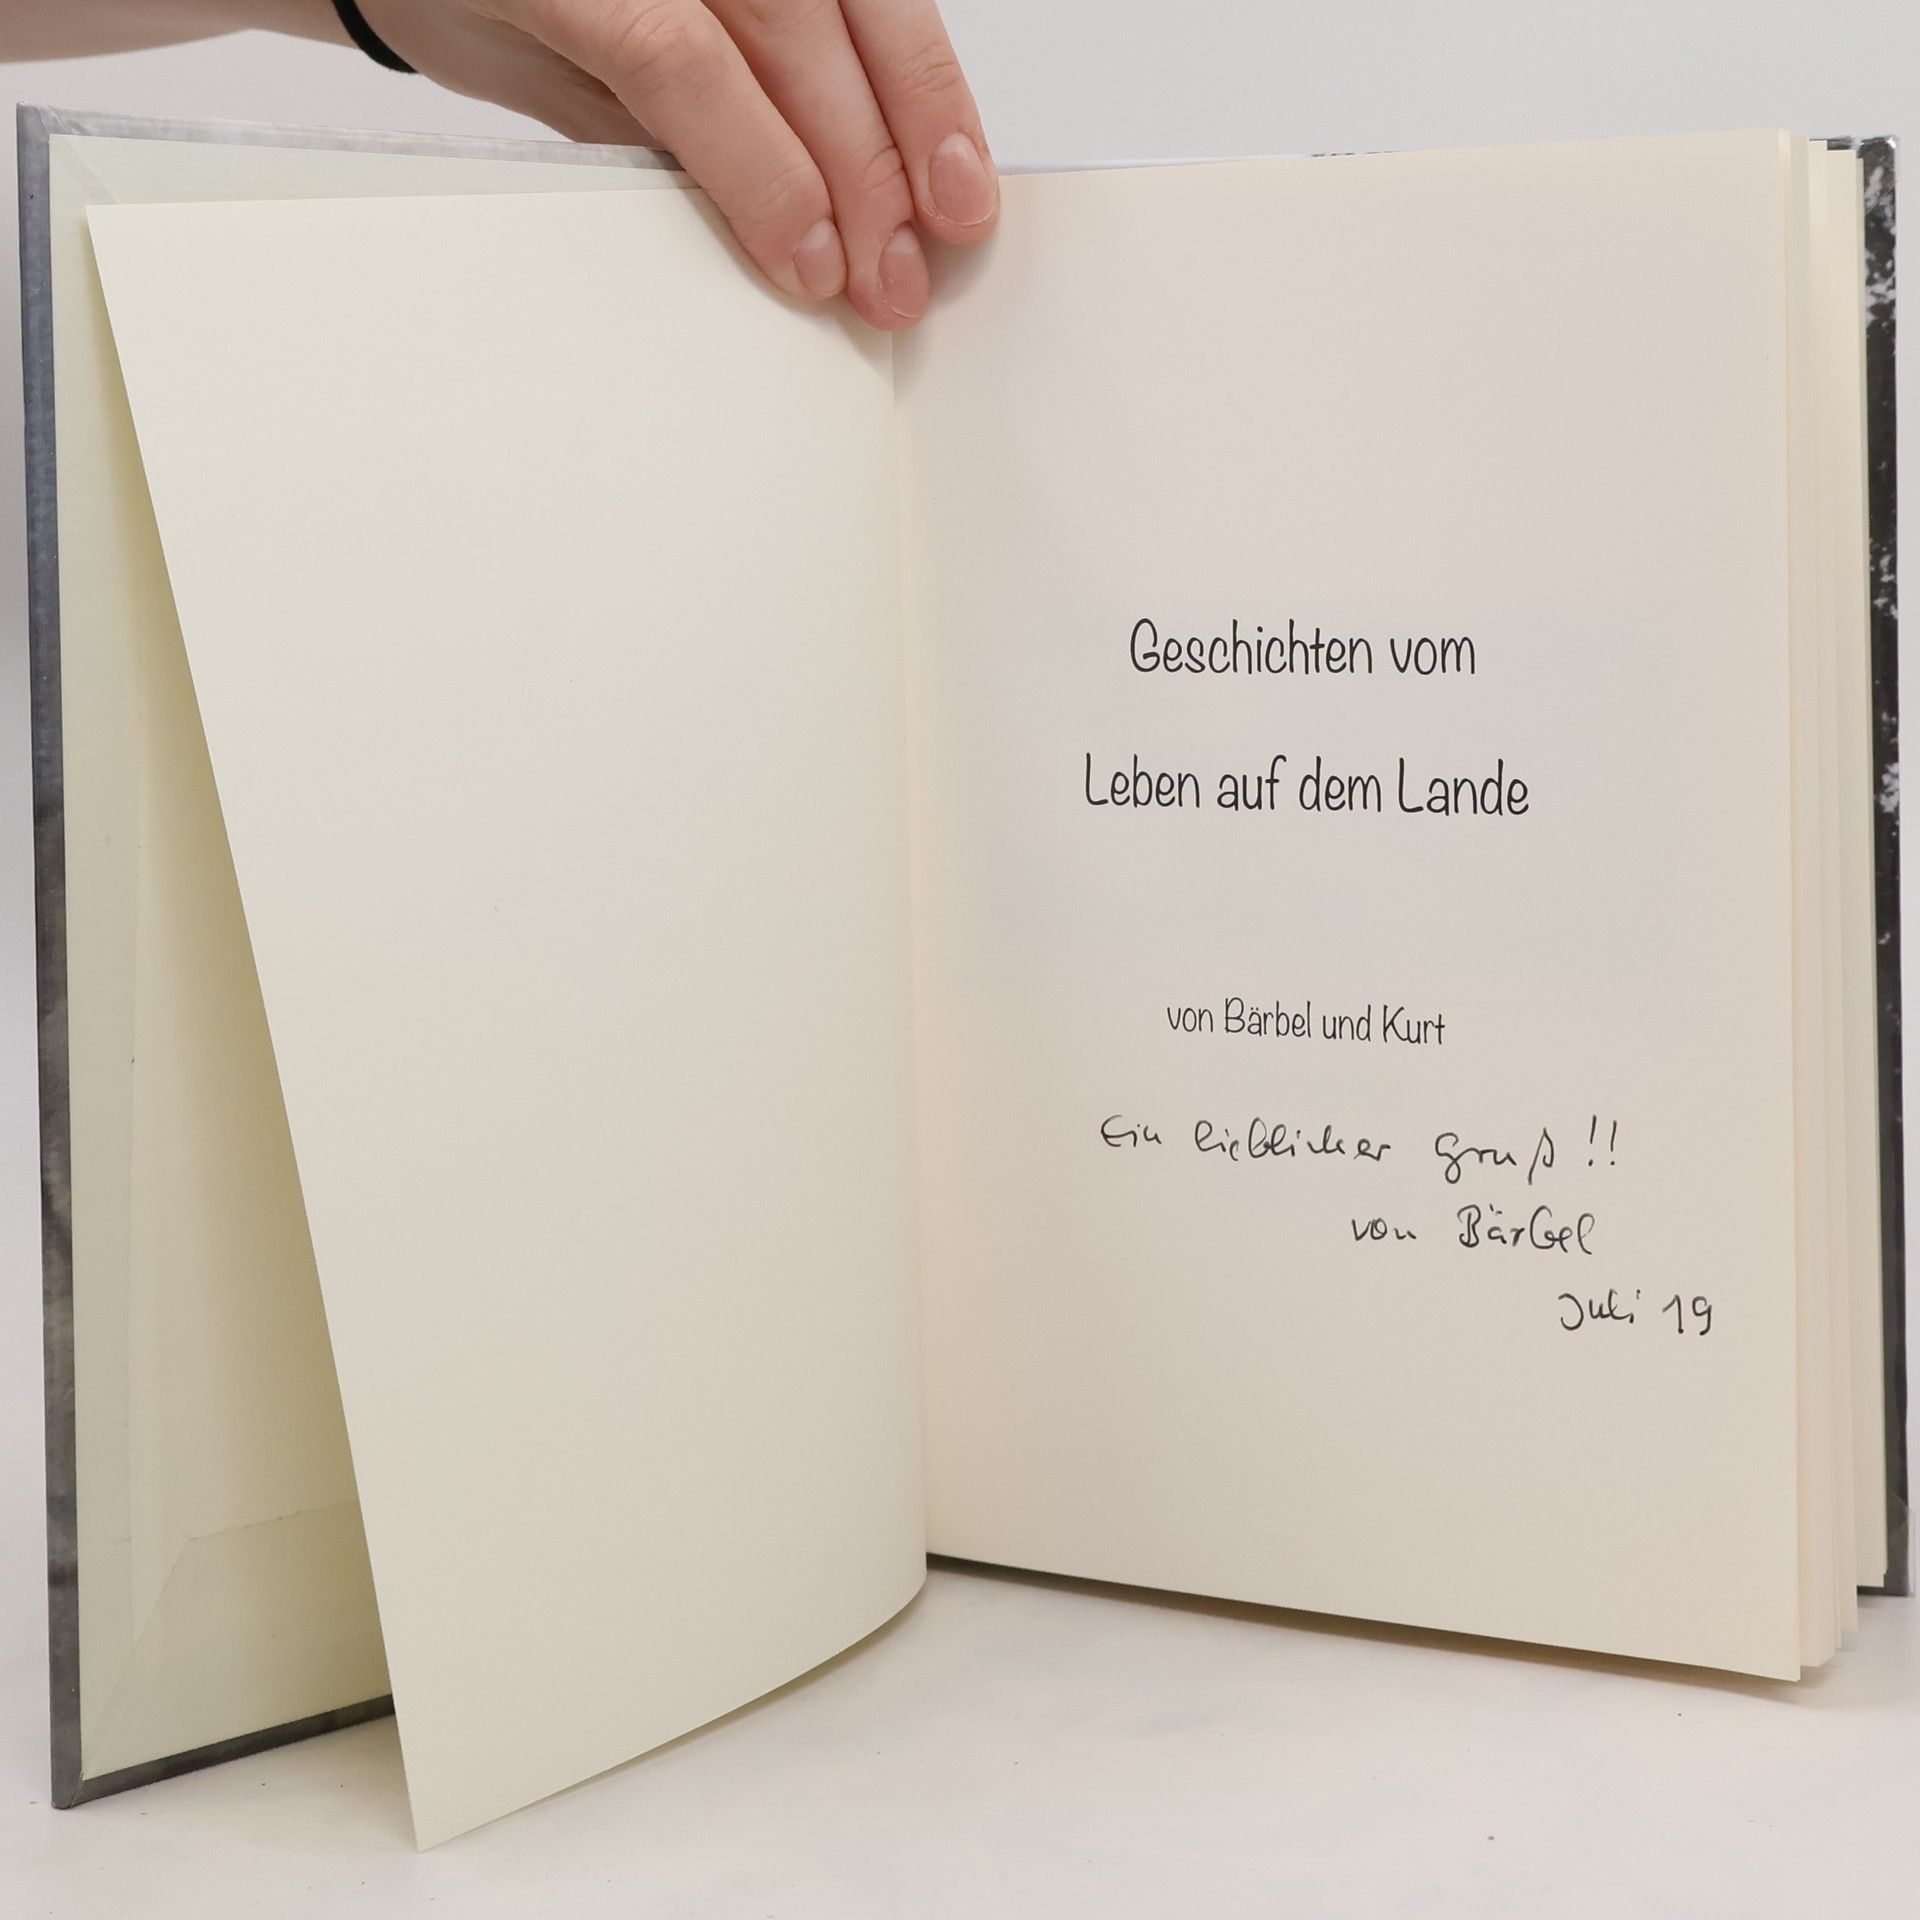 Geschichten vom
Leben auf dem Lande
von Bärbel und Kurt
Ein lieblicher Gruß !!
von Bärbel
Juli 19